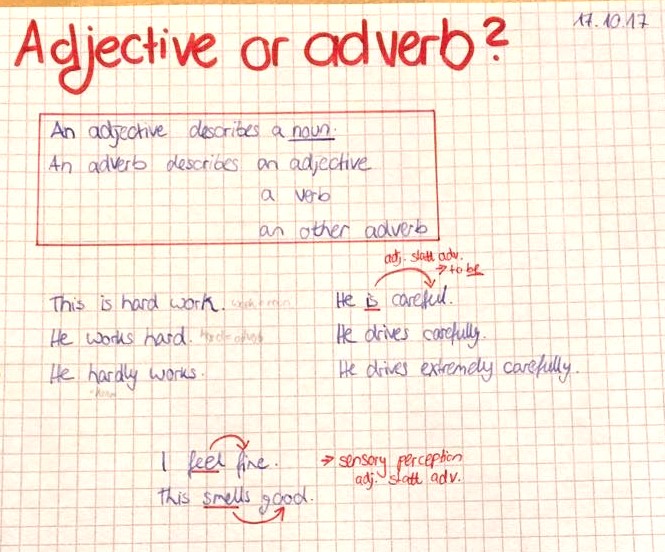 17.10.17
Adjective or adverb?
An adjective describes a noun.
An adverb describes an adjective
a verb
an other adverb
adj. statt adv.
→ to be
This is hard work.
He is careful.
He works hard.
He drives carefully.
He hardly works.
He drives extremely carefully.
I feel fine.
→ sensory perception
adj. statt adv.
This smells good.